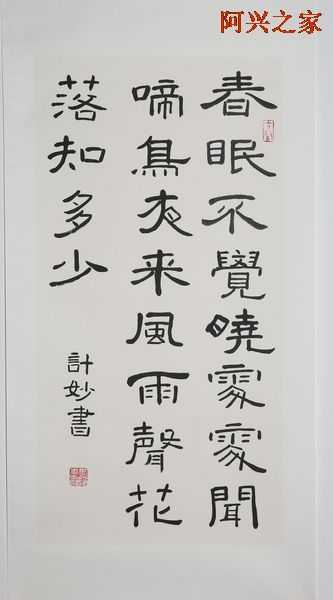 阿兴之家
春眠不覺曉處處聞
啼鳥夜来風雨聲花
落知多少
計妙書